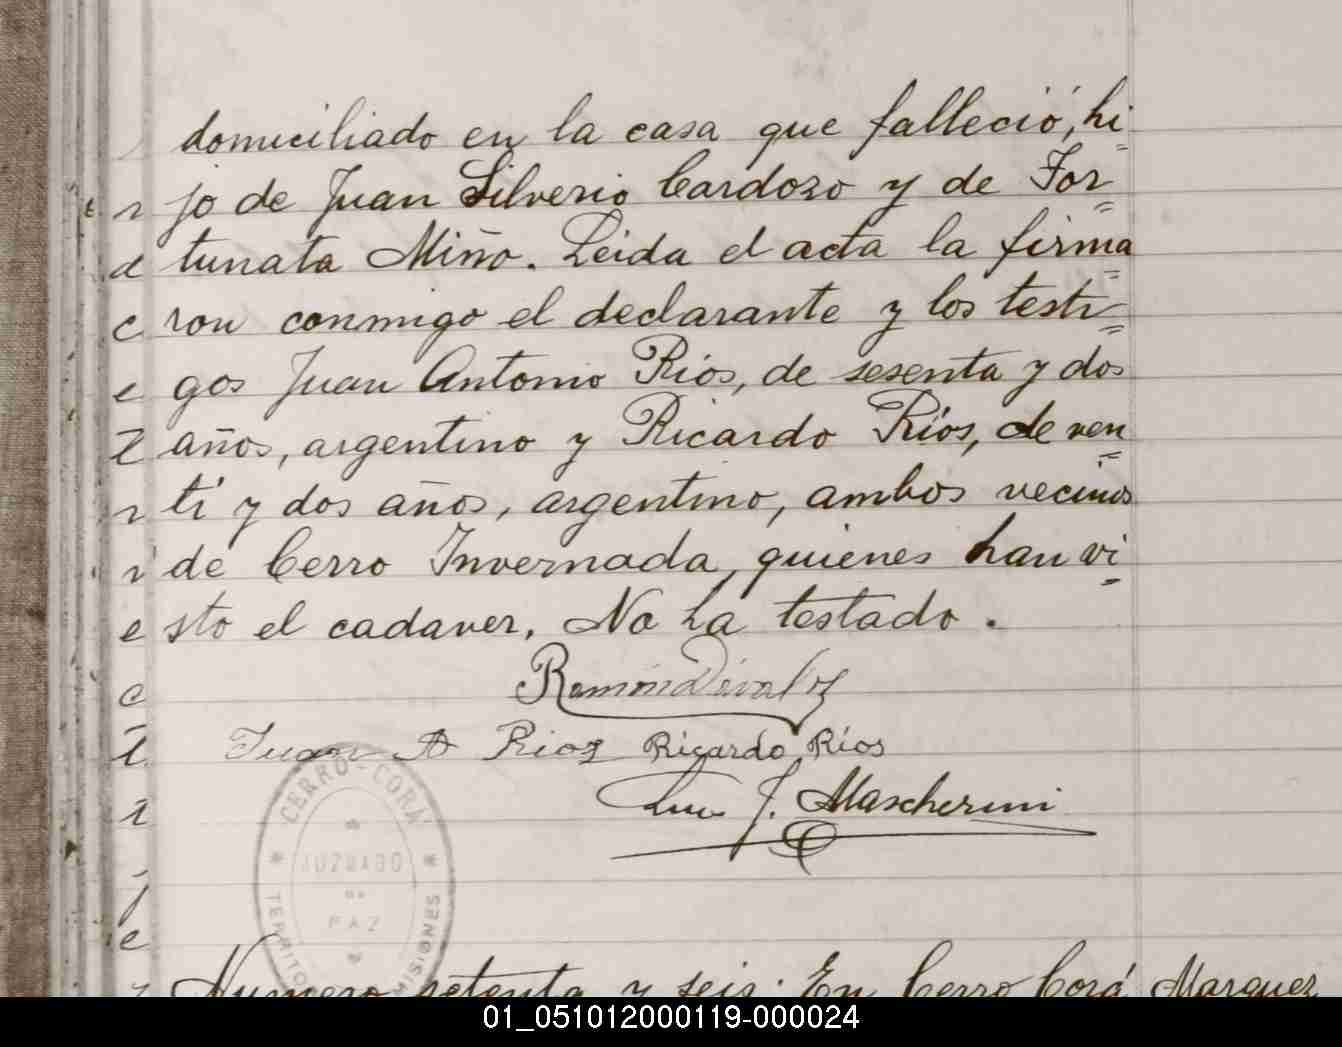 domiciliado en la casa que falleció, hi
jo de Juan Silverio Cardozo y de For
tunata Miño. Leida el acta la firma
ron conmigo el declarante y los testi
gos Juan Antonio Ríos, de sesenta y dos
años, argentino y Ricardo Ríos, de ven
ti y dos años, argentino, ambos vecinos
de Cerro Invernada, quienes han vi
sto el cadaver. No ha testado.
Ramón Davalos
Juan A Rios Ricardo Ríos
J. Mascherini
CERRO-CORÁ
JUZGADO
DE
PAZ
MISIONES
Numero setenta y seis. En Cerro Corá Marquez
01_051012000119-000024